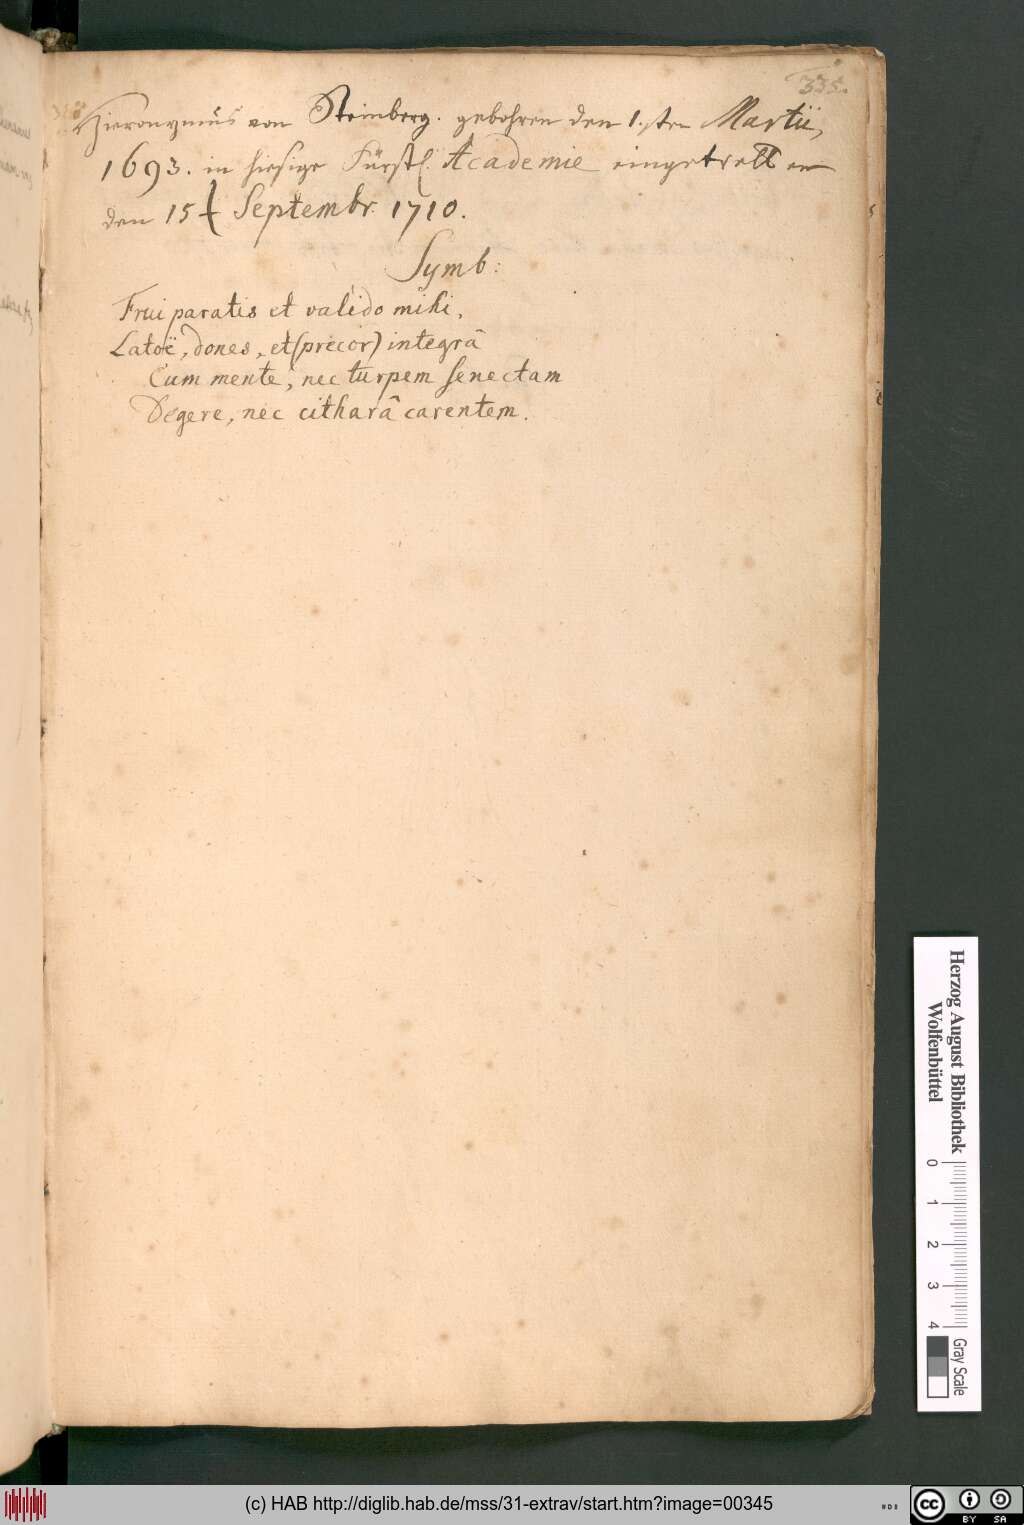 335.
Hieronymus von Steinberg. gebohren den 1.sten Martii,
1693. in hiesige Fürstl. Academie eingetretten
den 15t Septembr. 1710.
Symb:
Frui paratis et valido mihi,
Latoë, dones, et (precor) integrâ
Cum mente, nec turpem senectam
Degere, nec citharâ carentem.
Herzog August Bibliothek
Wolfenbüttel
0 1 2 3 4
Gray Scale
(c) HAB http://diglib.hab.de/mss/31-extrav/start.htm?image=00345
cc BY SA